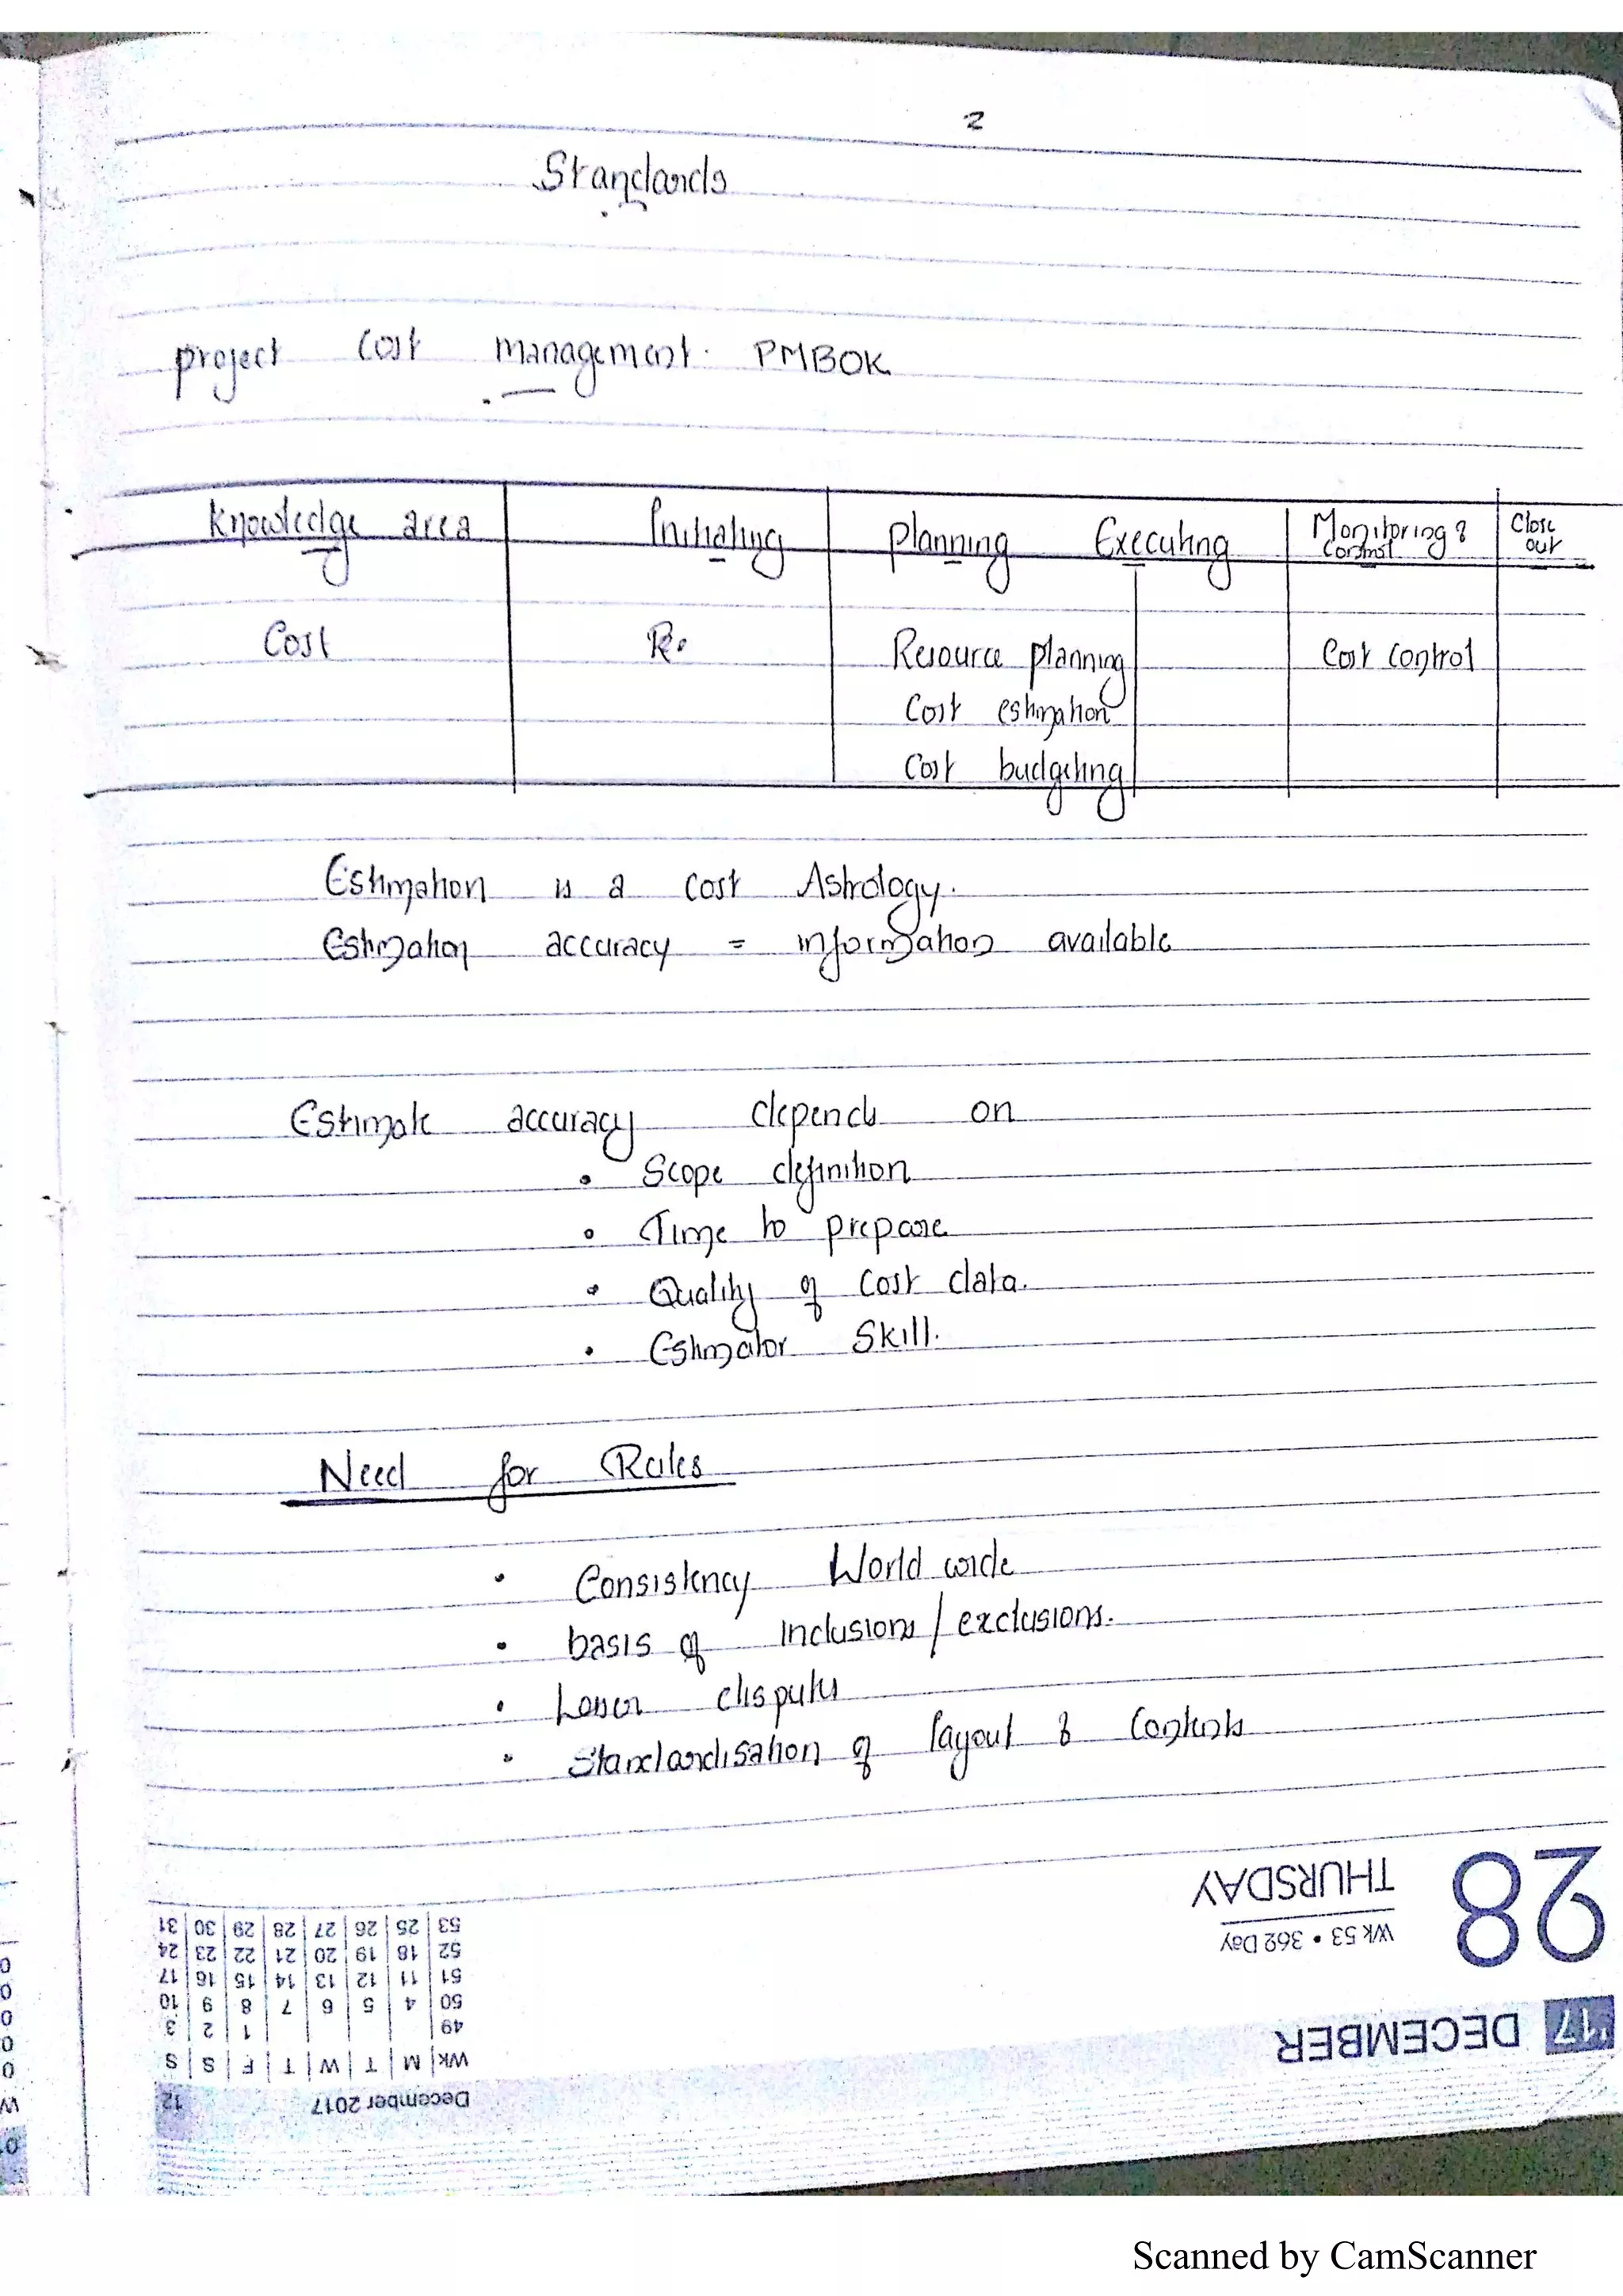 2
Standards
project cost management. PMBOK
Knowledge area Initiating planning Executing Monitoring & Control Close out
Cost R. Resource planning Cost control
Cost estimation
Cost budgeting
Estimation is a cost Astrology.
Estimation accuracy = information available
Estimate accuracy depends on
• Scope definition
• Time to prepare
• Quality of cost data.
• Estimator Skill.
Need for Rules
• Consistency World wide
• basis of inclusions / exclusions.
• Lesser disputes
• Standardisation of layout & Contents
28
THURSDAY
Wk 53 • 362 Day
'17 DECEMBER
December 2017 12
Wk M T W T F S S
49 1 2 3
50 4 5 6 7 8 9 10
51 11 12 13 14 15 16 17
52 18 19 20 21 22 23 24
53 25 26 27 28 29 30 31
Scanned by CamScanner